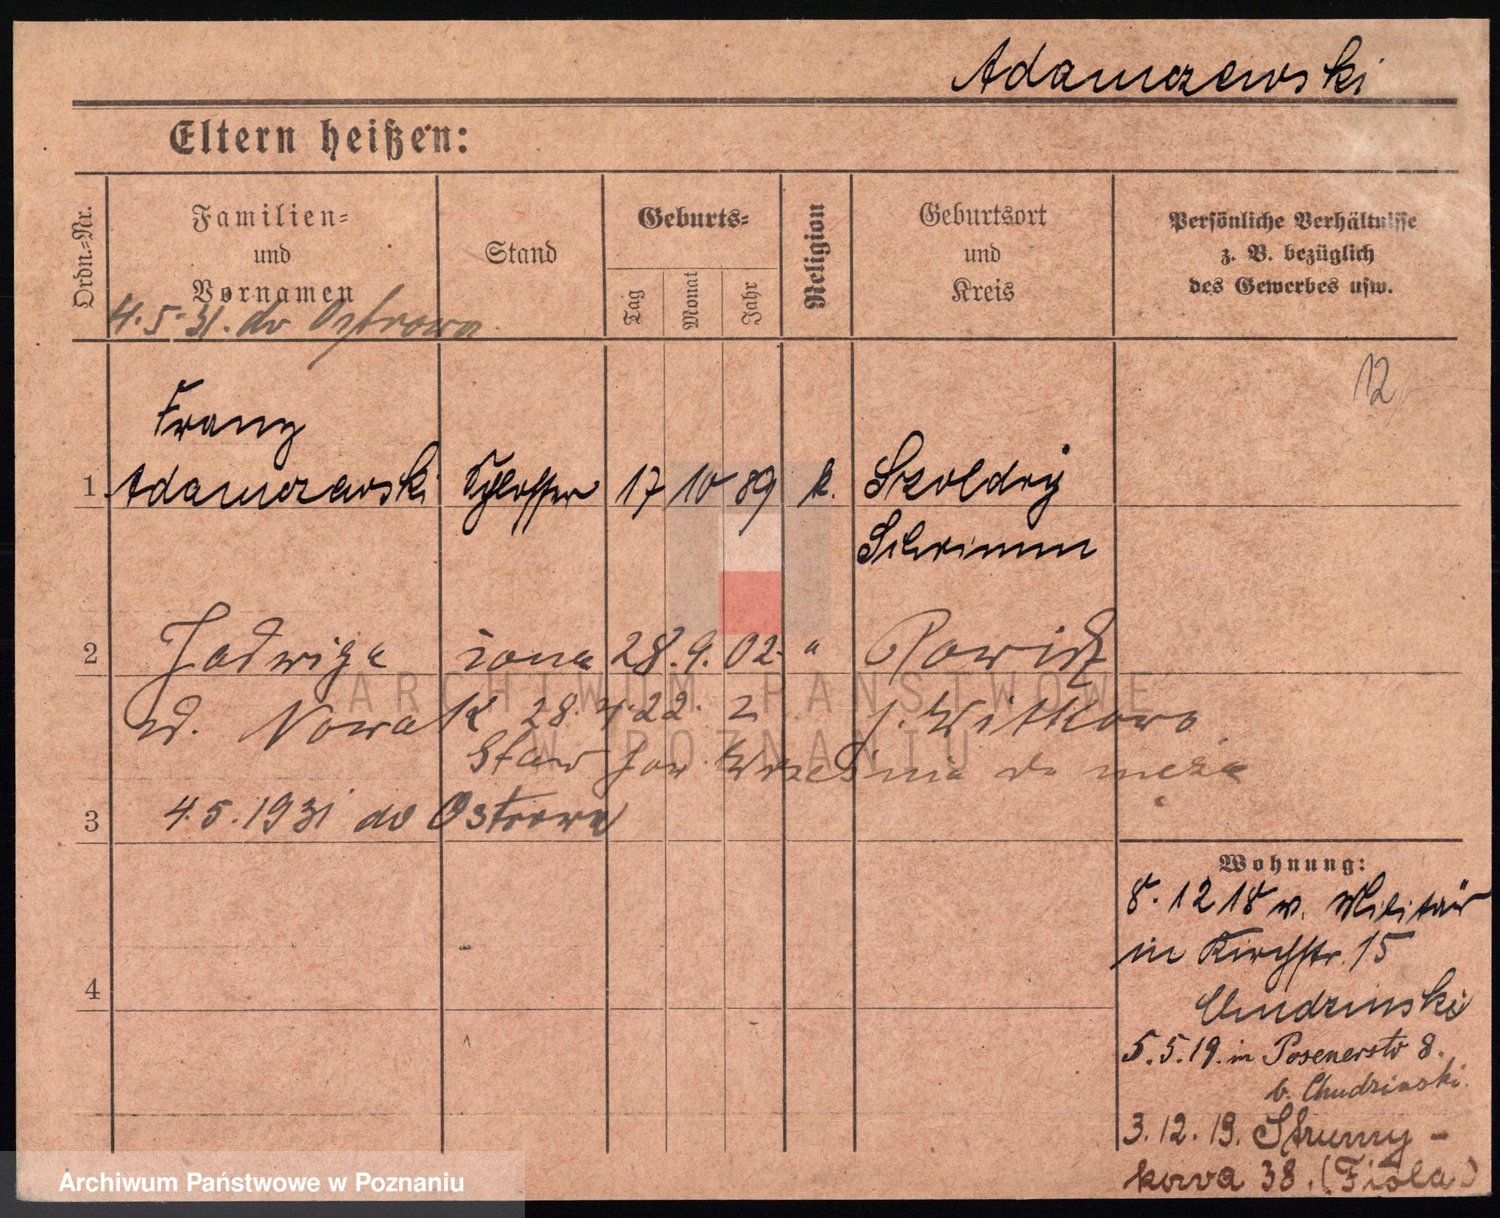 Adamczewski
Eltern heißen:
Ordn.=Nr.
Familien=
und
Vornamen
Stand
Geburts=
Tag
Monat
Jahr
Religion
Geburtsort
und
Kreis
Persönliche Verhältnisse
z. B. bezüglich
des Gewerbes usw.
4.5.31. do Ostrowa
12
Franz
1 Adamczewski Schlosser 17 10 89 k. Szoldry
Schrimm
2 Jadwiga żona 28. 9. 02. "
ud. Nowak 28. 4. 22. z j. Witkowo
Września do męża
3 4.5.1931 do Ostrowa
4
Wohnung:
8.12 18 v. Militär
in Kirchstr. 15
Chudzinski
5.5.19. in Posenerstr 8.
b. Chudzinski.
3.12.19. Strumy-
kowa 38. (Fiola)
ARCHIWUM PAŃSTWOWE
W POZNANIU
Archiwum Państwowe w Poznaniu